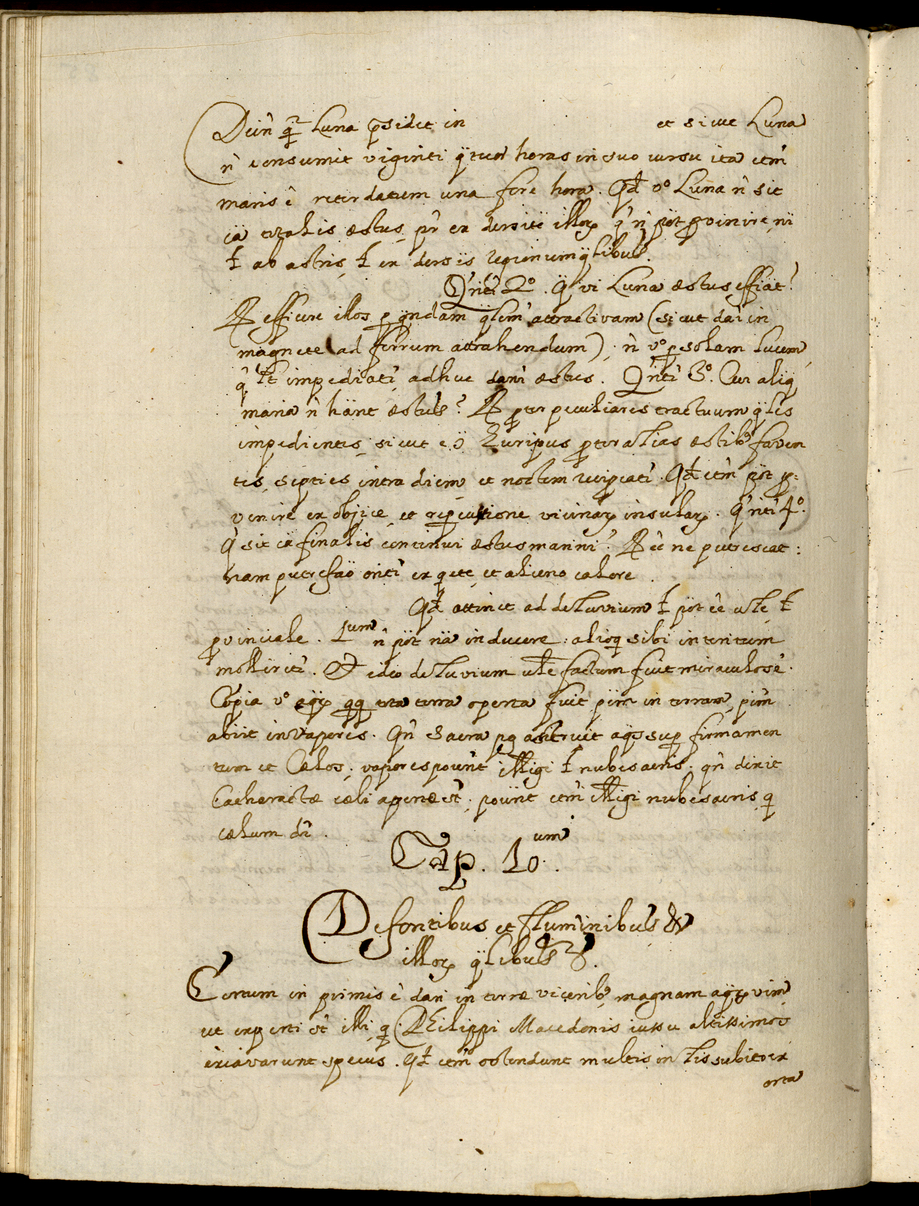 Dein̄ qr̄ Luna p̄sidet in et sicut Luna
n̄ consumit viginti q̄tuor horas in suo cursu ita etm̄
maris ē retardatum una fere hora. Qd̄ vo Luna n̄ sit
cā totalis æstus, pr̄ ex diversitē illoꝝ q̄ n̄ pōt provinire, nī
ł ab astris, ł ex diversis regionum q̄litibus.
Qrit̄ 2o. Qvi Luna æstus efficiat?
R efficere illos p qndam q̄litm̄ attractivam (sicut datī in
magnete ad ferrum attrahendum); n̄ vo p solam lucem,
q̄ lt̄ impediatī, adhuc danī æstus. Qritī 3o. Cur aliq
maria n̄ hānt æstus? R ptr peculiares tractuum q̄lites
impedientes, sicut eↄ̄ Euripus ptr alias æstibo faven
tes, septies intra diem et noctem recipiatī. Qd̄ etm̄ pōt p:
venire ex objice, et repercussione vicinaꝝ insulaꝝ. Qritī 4o.
Q sit cā finalis continui æstus marini? R eē ne putrescat:
nam putrefāo oritī ex quiete, et alieno calore.
Qd̄ attinet ad deluvium ł pōt eē ule ł
provinciale. 1um n̄ pōt nā inducere: alioq sibi interitum
moliretī. Et ideo deluvium ule factum fuit miraculose.
Copia vo aquaꝝ qq tota terra operta fuit, ptm̄ in terram, ptm̄
abiit in vapores. Qn̄ Sacra pg astruit aqs sup firmamen
tum et Cælos, vapores pount illigi ł nubes aeris; qn̄ dixit
Catharactæ cæli apertæ st̄; pount etm̄ illigi nubes aeris, q
cælum dr̄.
Cap. 10um.
De fontibus et fluminibus &
illoꝝ q̄litibus.
Certum in primis ē dari in terræ visceribo magnam aquaꝝ vim
ut experti st̄ illi, q Philippi Macedonis iussu altissimos
excavarunt specus. Qd̄ etm̄ ostendunt multis in lis subito ex
orta